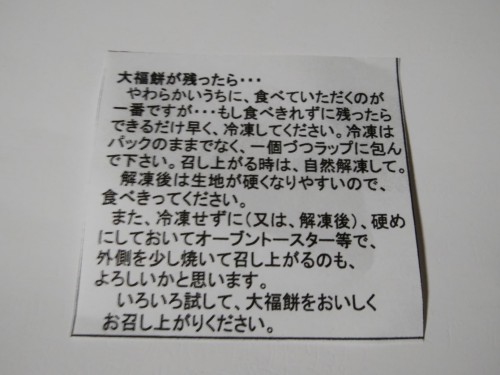 大福餅が残ったら・・・
やわらかいうちに、食べていただくのが
一番ですが・・・もし食べきれずに残ったら
できるだけ早く、冷凍してください。冷凍は
パックのままでなく、一個づつラップに包ん
で下さい。召し上がる時は、自然解凍して。
解凍後は生地が硬くなりやすいので、
食べきってください。
また、冷凍せずに(又は、解凍後)、硬め
にしておいてオーブントースター等で、
外側を少し焼いて召し上がるのも、
よろしいかと思います。
いろいろ試して、大福餅をおいしく
お召し上がりください。